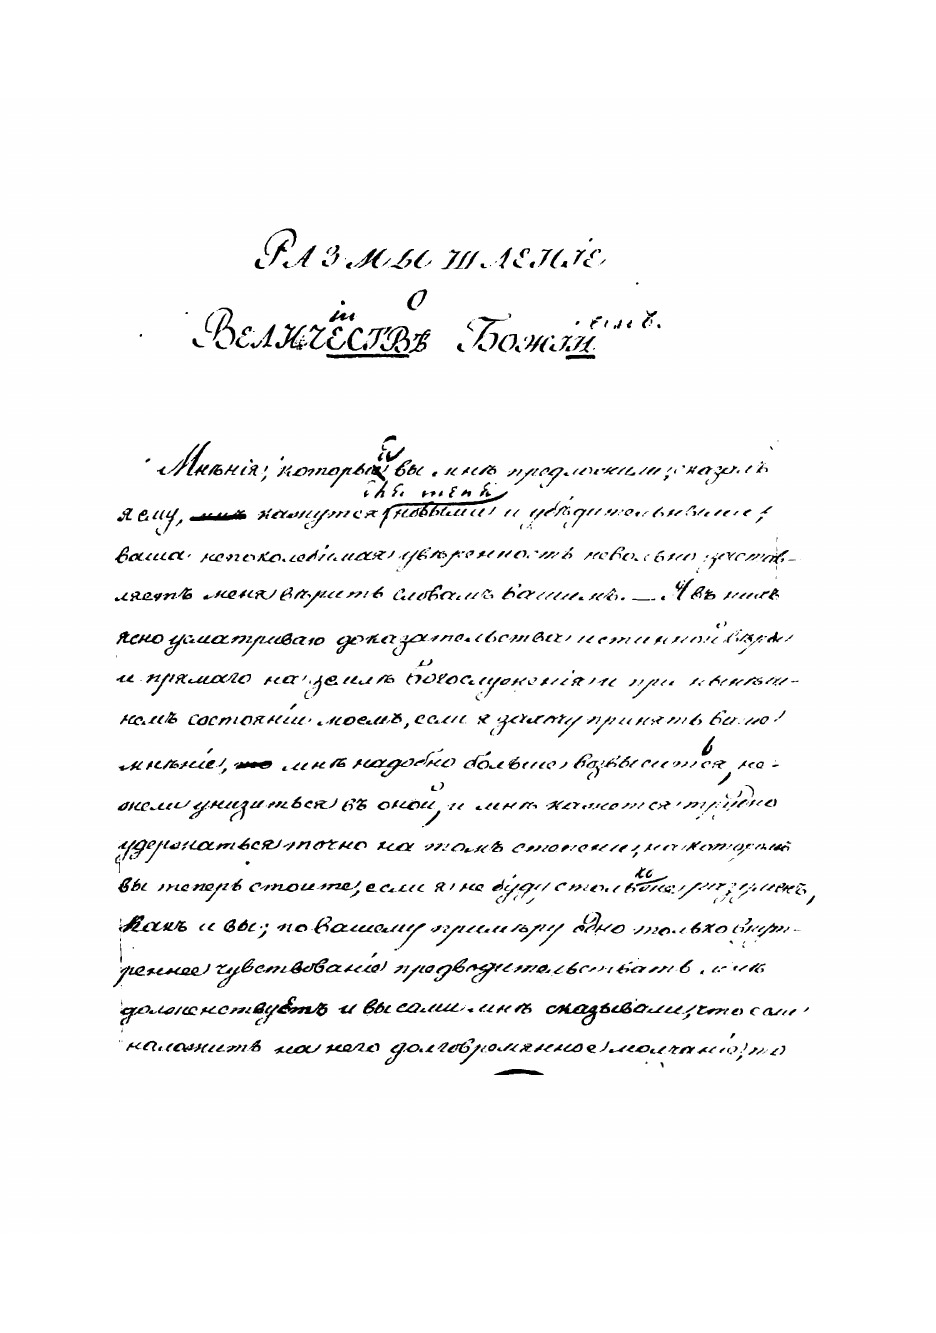 РАЗМЫШЛЕНІЕ
О
ВЕЛИЧЕСТВѢ БОЖІИ
Мнѣнія, которыя вы мнѣ предложили, сказалъ
я ему, кажутся новыми и убѣдительными;
ваша непоколебимая увѣренность невольно застав-
ляетъ меня вѣрить словамъ вашимъ. — Я въ нихъ
ясно усматриваю доказательства истинной вѣры
и прямаго на землѣ богослуженія и при нынѣш-
немъ состояніи моемъ, если я захочу принять ваше
мнѣніе, мнѣ надобно больше возвысится, не-
жели унизиться въ оной, и мнѣ кажется трудно
удержаться точно на томъ степени, на которомъ
вы теперь стоите, если я не буду столько разуменъ,
Какъ и вы; по вашему примѣру одно только внут-
реннее чувствованіе предводительствать имъ
долженствуетъ и вы сами мнѣ сказывали, что если
наложить на него долговремянное молчаніе, то